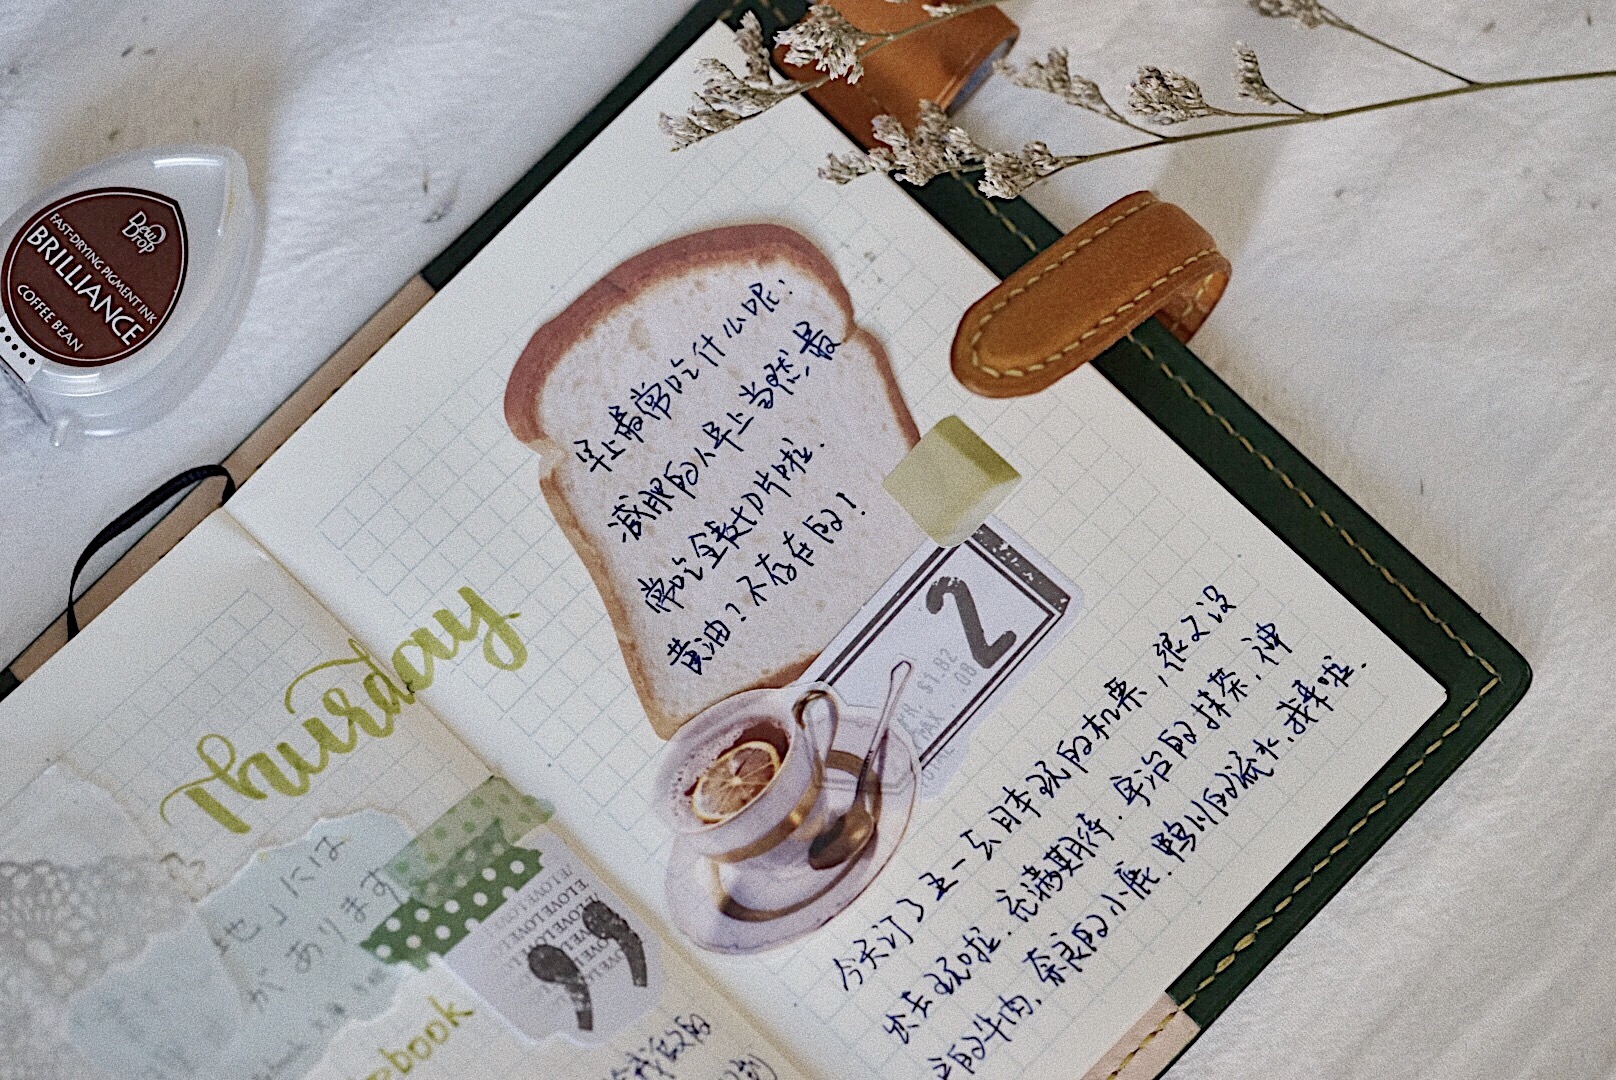 Dew Drop
FAST-DRYING PIGMENT INK
BRILLIANCE
COFFEE BEAN
早上常常吃什么呢?
减肥的人早上当然最
常吃全麦切片啦.
黄油?不存在的!
2
$1.82
Thursday
」には
が あります
ELOVELOVE
book
今天订了五一去日本玩的机票,很久没
出去玩啦.充满期待.宇治的抹茶,神
户的牛肉,奈良的小鹿.鸭川的流水,我来啦.